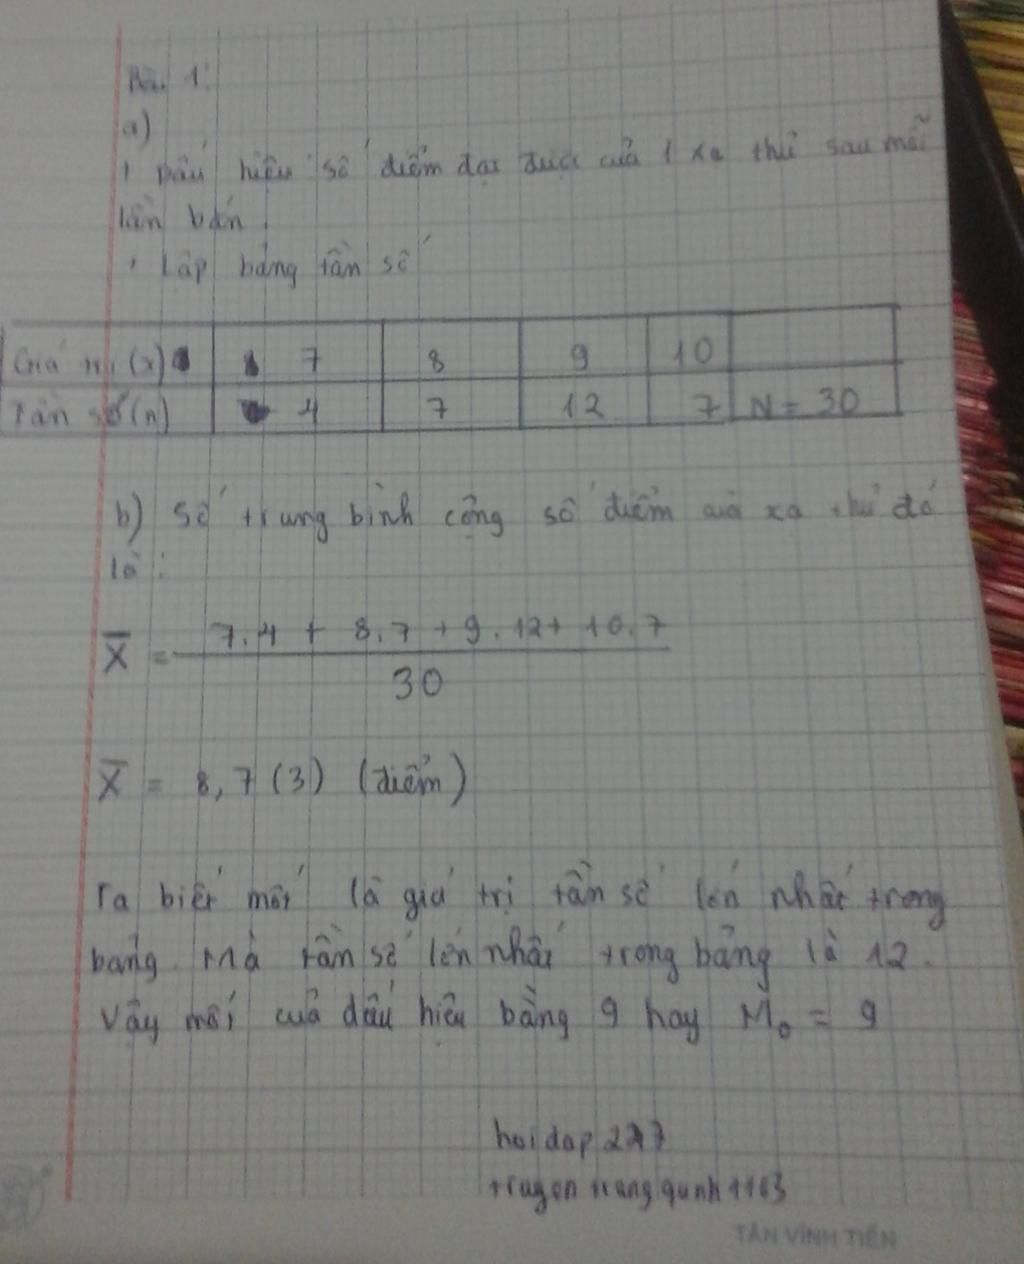 Bài 1:
a)
, Dấu hiệu: số điểm đạt được của 1 xạ thủ sau mỗi
lần bắn.
, Lập bảng tần số
Giá trị (x) 7 8 9 10
Tần số (n) 4 7 12 7 N = 30
b) Số trung bình cộng số điểm của xạ thủ đó
là:
X̅ = (7.4 + 8.7 + 9.12 + 10.7) / 30
X̅ = 8,7(3) (điểm)
Ta biết mốt là giá trị tần số lớn nhất trong
bảng. Mà tần số lớn nhất trong bảng là 12.
Vậy mốt của dấu hiệu bằng 9 hay M₀ = 9
hoidap247
TÂN VĨNH TIẾN